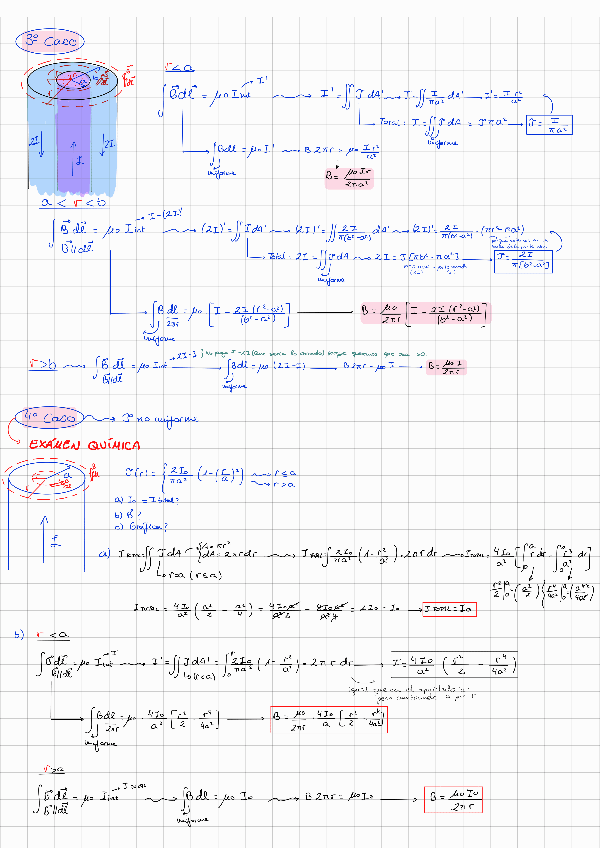 3º Caso
r<a
∫ B⃗ dl⃗ = μ₀ I int → I'
I' = ∬ J dA' → I' = ∬ I/πa² dA' → I' = I r²/a²
Total: I = ∬ J dA = J πa² → J = I/πa²
uniforme
∫ B dl = μ₀ I' → B 2πr = μ₀ I r²/a²
uniforme
B = μ₀ I r/2πa²
2I
I
2I
a < r < b
∫ B⃗ dl⃗ = μ₀ I int → I-(2I)'
B⃗ ∥ dl⃗
(2I)' = ∬ J dA' → (2I)' = ∬ 2I/π(b²-a²) dA' → (2I)' = 2I/π(b²-a²) · (πr²-πa²)
Total: 2I = ∬ J dA → 2I = J[πb² - πa²] → J = 2I/π[b²-a²]
uniforme
∫ B dl = μ₀ [I - 2I(r²-a²)/(b²-a²)]
2πr
uniforme
B = μ₀/2πr [I - 2I(r²-a²)/(b²-a²)]
r>b
∫ B⃗ dl⃗ = μ₀ I int → 2I-I
B⃗ ∥ dl⃗
∫ B dl = μ₀ (2I-I) → B 2πr = μ₀ I → B = μ₀ I/2πr
uniforme
4º Caso → J no uniforme
EXÁMEN QUÍMICA
J(r) = { 2I₀/πa² (1-(r/a)²) → r≤a
→ r>a
a) I₀ = I total?
b) B?
c) Gráfica?
a) I TOTAL = ∬ J dA dA = 2πr dr → I TOTAL = ∫ 2I₀/πa² (1 - r²/a²) · 2πr dr → I TOTAL = 4I₀/a² [∫ r dr - ∫ r³/a² dr]
r=a (r≤a)
I TOTAL = 4I₀/a² (a²/2 - a²/4) = 4I₀a²/a²2 - 4I₀a²/a²4 = 2I₀ - I₀ → I TOTAL = I₀
b) r<a
∫ B⃗ dl⃗ = μ₀ I int → I'
B⃗ ∥ dl⃗
I' = ∬ J dA' = ∫ 2I₀/πa² (1 - r²/a²) · 2πr dr → I' = 4I₀/a² (r²/2 - r⁴/4a²)
(r<a)
igual que en el apartado a
pero cambiando a por r
∫ B dl = μ₀ · 4I₀/a² [r²/2 - r⁴/4a²] → B = μ₀/2πr · 4I₀/a² [r²/2 - r⁴/4a²]
2πr
uniforme
r>a
∫ B⃗ dl⃗ = μ₀ I int → I total
B⃗ ∥ dl⃗
∫ B dl = μ₀ I₀ → B 2πr = μ₀ I₀ → B = μ₀ I₀/2πr
uniforme